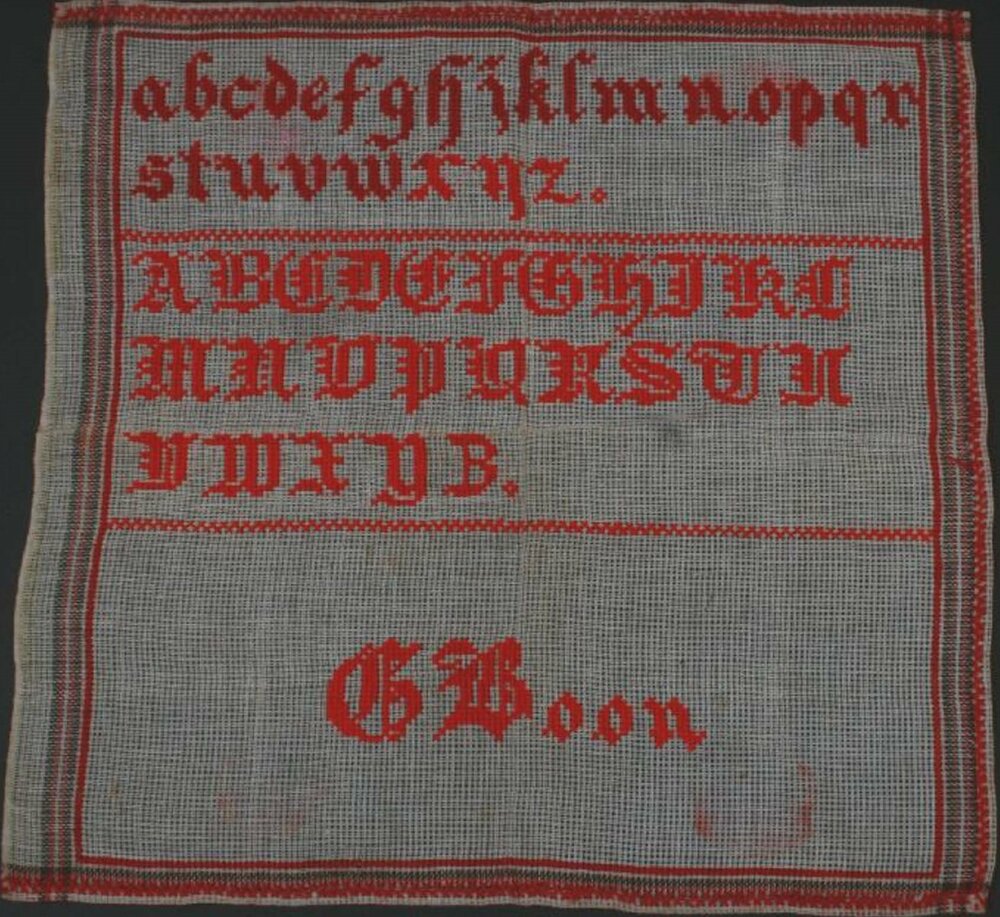 abcdefghiklmnopqr
stuvwxyz.
ABCDEFGHIKL
MNOPQRSTU
VWXYZ.
G Boon